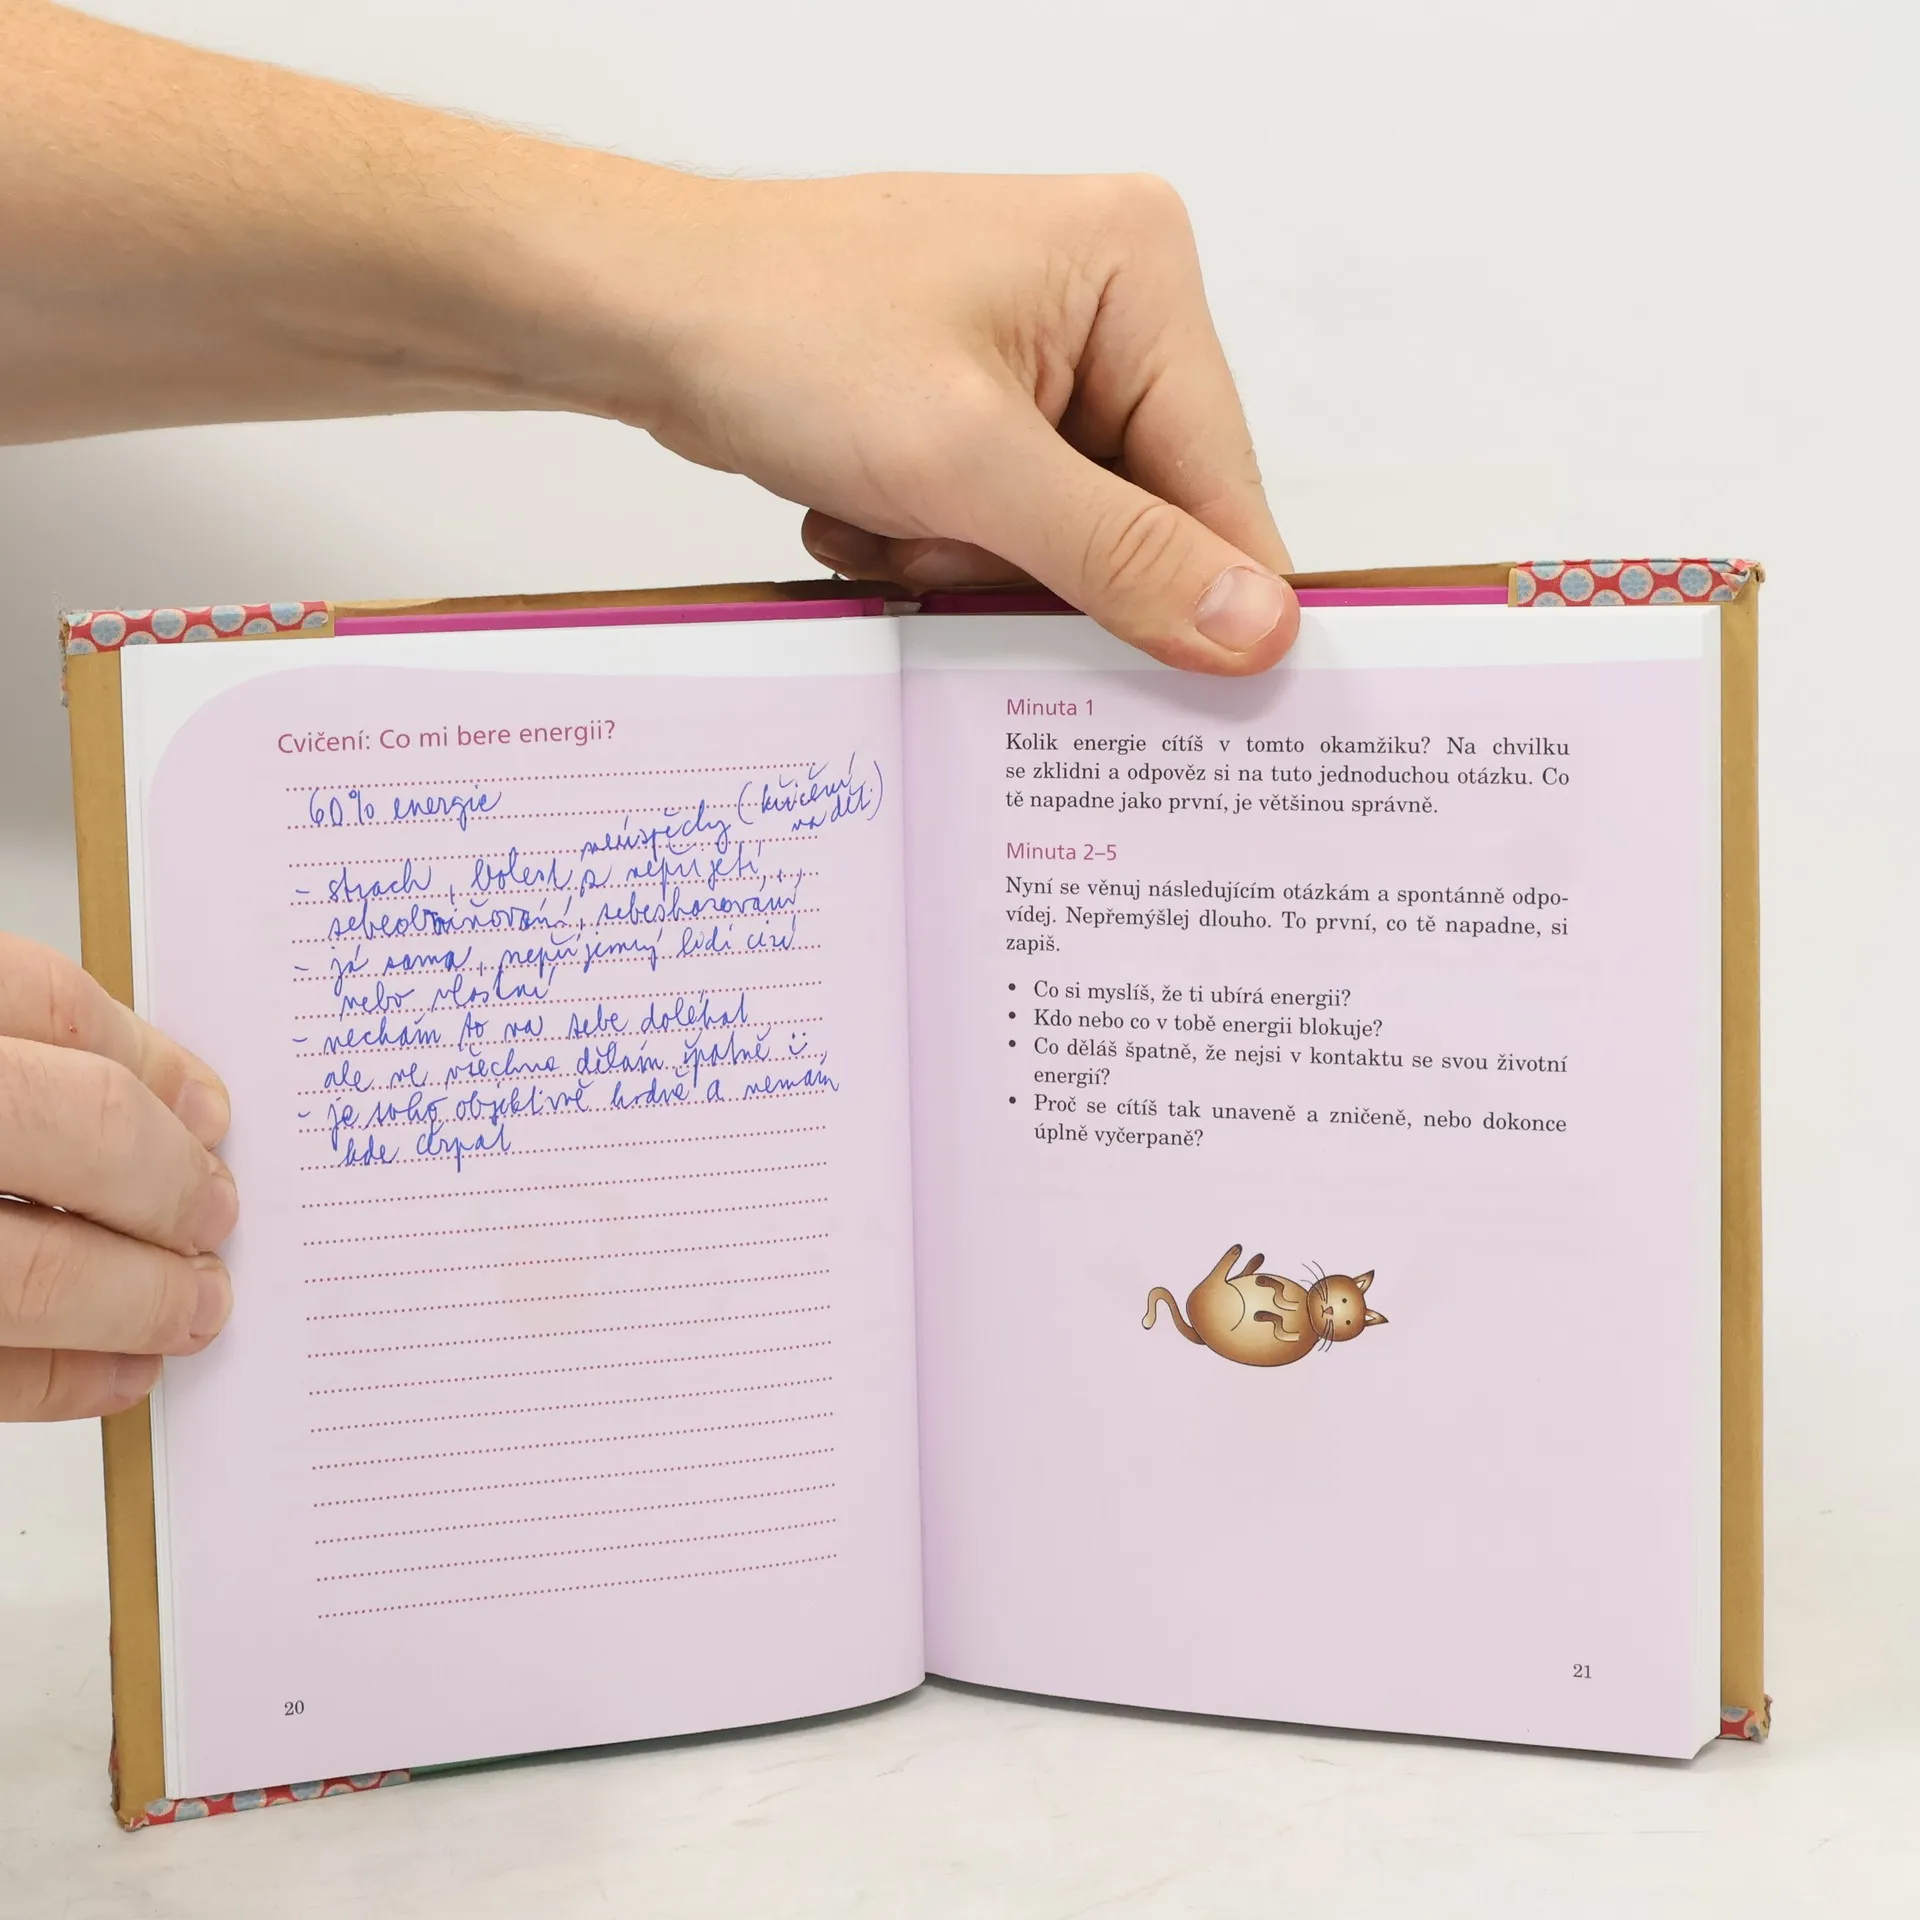 Cvičení: Co mi bere energii?
60% energie
neúspěchy (křičení
na dět.)
- strach, bolest z nepřijetí,
sebeobviňování, sebeshazování
- já sama, nepříjemný lidi cizí
nebo vlastní
- nechám to na sebe doléhat
ale ve všechno dělám špatně :,
- je toho objektivně hodně a nemám
kde čerpat
20
Minuta 1
Kolik energie cítíš v tomto okamžiku? Na chvilku
se zklidni a odpověz si na tuto jednoduchou otázku. Co
tě napadne jako první, je většinou správně.
Minuta 2–5
Nyní se věnuj následujícím otázkám a spontánně odpo-
vídej. Nepřemýšlej dlouho. To první, co tě napadne, si
zapiš.
• Co si myslíš, že ti ubírá energii?
• Kdo nebo co v tobě energii blokuje?
• Co děláš špatně, že nejsi v kontaktu se svou životní
energií?
• Proč se cítíš tak unaveně a zničeně, nebo dokonce
úplně vyčerpaně?
21